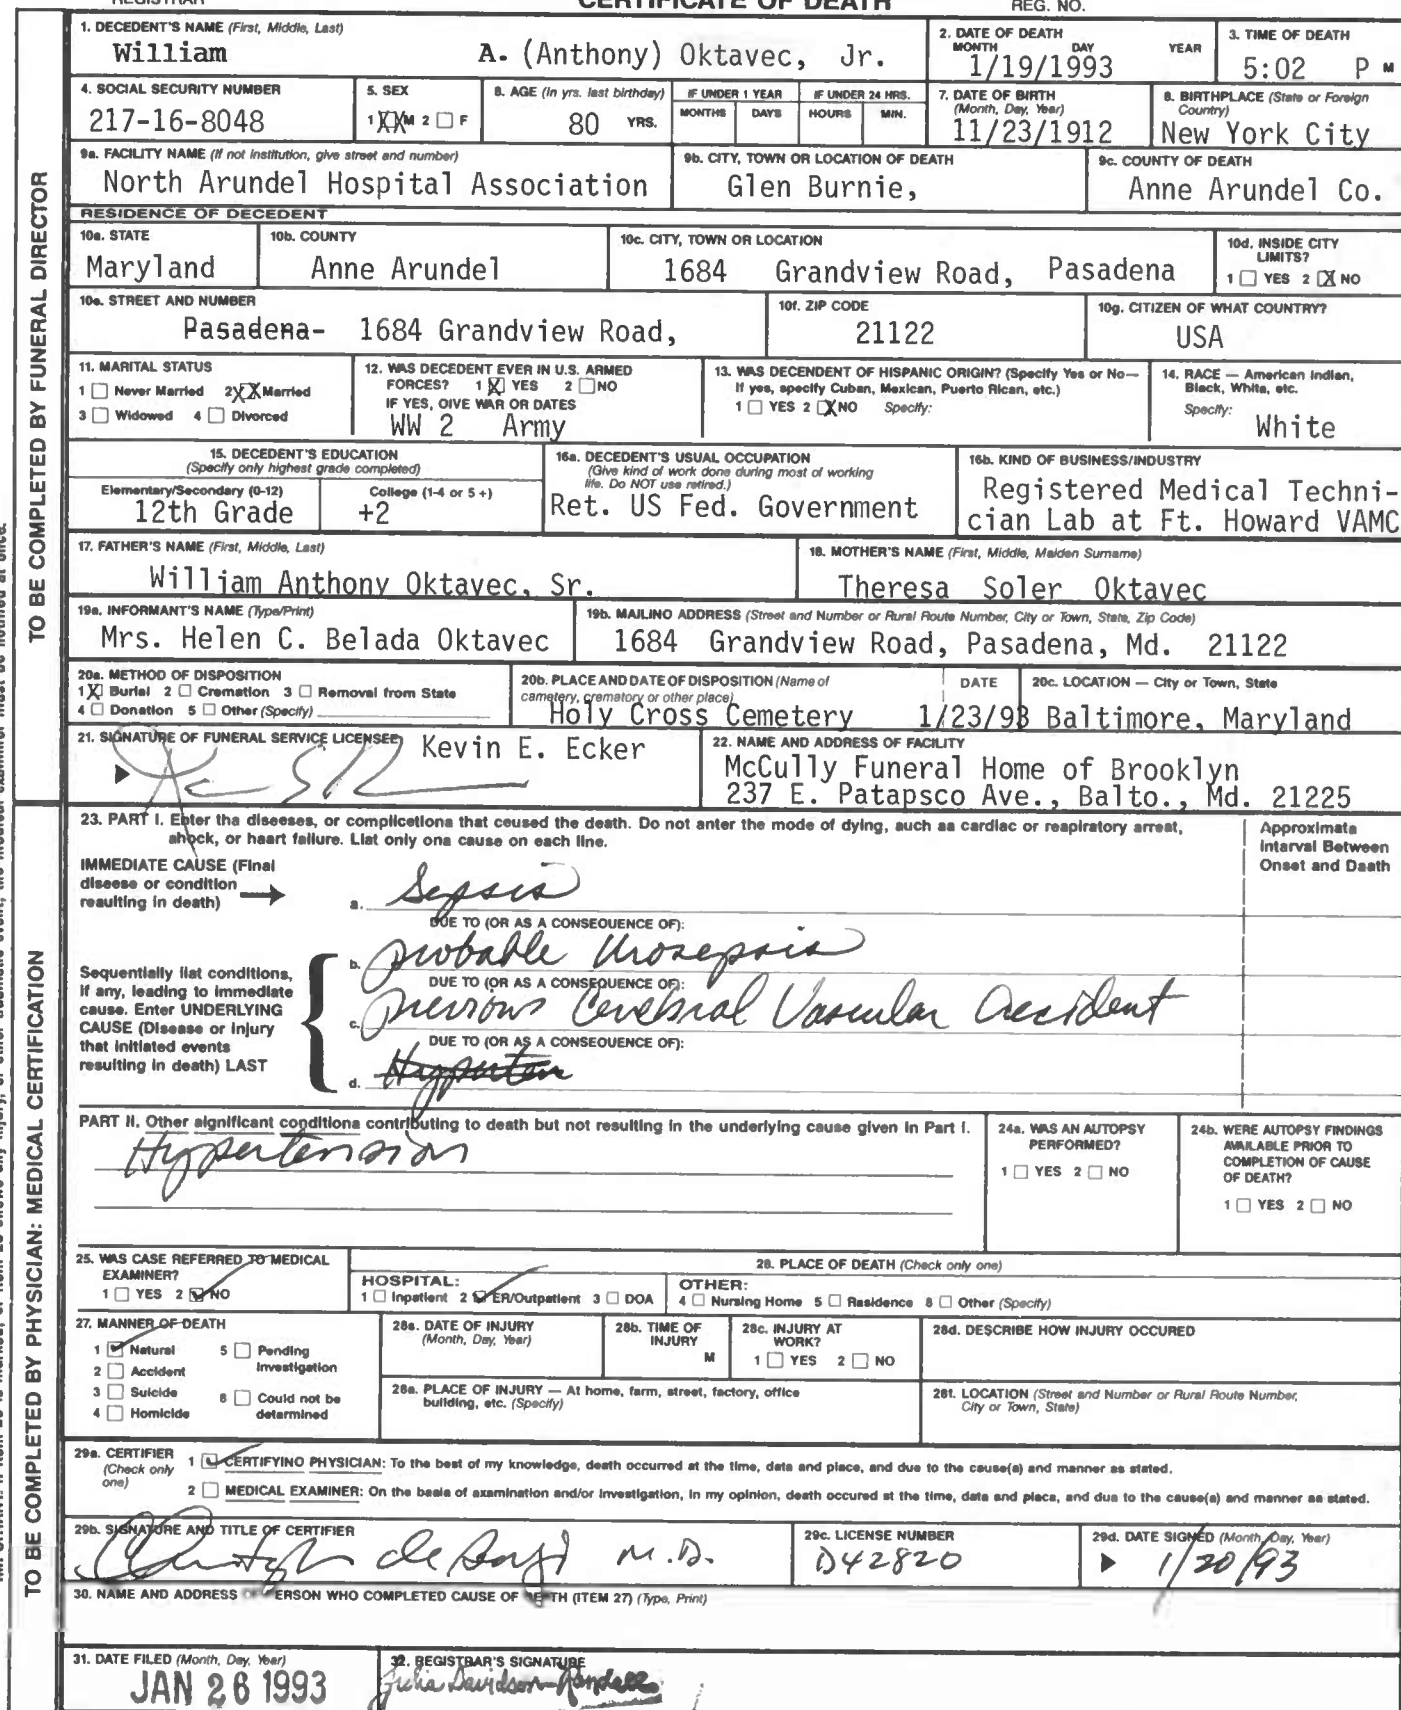 REGISTRAR CERTIFICATE OF DEATH REG. NO.
1. DECEDENT'S NAME (First, Middle, Last)
William A. (Anthony) Oktavec, Jr.
2. DATE OF DEATH
MONTH DAY YEAR
1/19/1993
3. TIME OF DEATH
5:02 P M
4. SOCIAL SECURITY NUMBER
217-16-8048
5. SEX
1 XX M 2 ☐ F
6. AGE (In yrs. last birthday)
80 YRS.
IF UNDER 1 YEAR
MONTHS DAYS
IF UNDER 24 HRS.
HOURS MIN.
7. DATE OF BIRTH
(Month, Day, Year)
11/23/1912
8. BIRTHPLACE (State or Foreign
Country)
New York City
9a. FACILITY NAME (If not institution, give street and number)
North Arundel Hospital Association
9b. CITY, TOWN OR LOCATION OF DEATH
Glen Burnie,
9c. COUNTY OF DEATH
Anne Arundel Co.
RESIDENCE OF DECEDENT
10a. STATE
Maryland
10b. COUNTY
Anne Arundel
10c. CITY, TOWN OR LOCATION
1684 Grandview Road, Pasadena
10d. INSIDE CITY
LIMITS?
1 ☐ YES 2 X NO
10e. STREET AND NUMBER
Pasadena- 1684 Grandview Road,
10f. ZIP CODE
21122
10g. CITIZEN OF WHAT COUNTRY?
USA
11. MARITAL STATUS
1 ☐ Never Married 2 XX Married
3 ☐ Widowed 4 ☐ Divorced
12. WAS DECEDENT EVER IN U.S. ARMED
FORCES? 1 X YES 2 ☐ NO
IF YES, GIVE WAR OR DATES
WW 2 Army
13. WAS DECENDENT OF HISPANIC ORIGIN? (Specify Yes or No—
If yes, specify Cuban, Mexican, Puerto Rican, etc.)
1 ☐ YES 2 X NO Specify:
14. RACE — American Indian,
Black, White, etc.
Specify:
White
15. DECEDENT'S EDUCATION
(Specify only highest grade completed)
Elementary/Secondary (0-12) College (1-4 or 5+)
12th Grade +2
16a. DECEDENT'S USUAL OCCUPATION
(Give kind of work done during most of working
life. Do NOT use retired.)
Ret. US Fed. Government
16b. KIND OF BUSINESS/INDUSTRY
Registered Medical Techni-
cian Lab at Ft. Howard VAMC
17. FATHER'S NAME (First, Middle, Last)
William Anthony Oktavec, Sr.
18. MOTHER'S NAME (First, Middle, Maiden Surname)
Theresa Soler Oktavec
19a. INFORMANT'S NAME (Type/Print)
Mrs. Helen C. Belada Oktavec
19b. MAILING ADDRESS (Street and Number or Rural Route Number, City or Town, State, Zip Code)
1684 Grandview Road, Pasadena, Md. 21122
20a. METHOD OF DISPOSITION
1 X Burial 2 ☐ Cremation 3 ☐ Removal from State
4 ☐ Donation 5 ☐ Other (Specify)
20b. PLACE AND DATE OF DISPOSITION (Name of
cemetery, crematory or other place)
Holy Cross Cemetery
DATE
1/23/93
20c. LOCATION — City or Town, State
Baltimore, Maryland
21. SIGNATURE OF FUNERAL SERVICE LICENSEE
Kevin E. Ecker
22. NAME AND ADDRESS OF FACILITY
McCully Funeral Home of Brooklyn
237 E. Patapsco Ave., Balto., Md. 21225
TO BE COMPLETED BY FUNERAL DIRECTOR
23. PART I. Enter the diseases, or complications that caused the death. Do not enter the mode of dying, such as cardiac or respiratory arrest,
shock, or heart failure. List only one cause on each line.
Approximate
Interval Between
Onset and Death
IMMEDIATE CAUSE (Final
disease or condition
resulting in death)
a. Sepsis
DUE TO (OR AS A CONSEQUENCE OF):
b. probable Urosepsis
DUE TO (OR AS A CONSEQUENCE OF):
c. previous Cerebral Vascular accident
DUE TO (OR AS A CONSEQUENCE OF):
d. Hyperten
Sequentially list conditions,
if any, leading to immediate
cause. Enter UNDERLYING
CAUSE (Disease or injury
that initiated events
resulting in death) LAST
PART II. Other significant conditions contributing to death but not resulting in the underlying cause given in Part I.
Hypertension
24a. WAS AN AUTOPSY
PERFORMED?
1 ☐ YES 2 ☐ NO
24b. WERE AUTOPSY FINDINGS
AVAILABLE PRIOR TO
COMPLETION OF CAUSE
OF DEATH?
1 ☐ YES 2 ☐ NO
25. WAS CASE REFERRED TO MEDICAL
EXAMINER?
1 ☐ YES 2 ☑ NO
26. PLACE OF DEATH (Check only one)
HOSPITAL:
1 ☐ Inpatient 2 ☑ ER/Outpatient 3 ☐ DOA
OTHER:
4 ☐ Nursing Home 5 ☐ Residence 6 ☐ Other (Specify)
27. MANNER OF DEATH
1 ☑ Natural 5 ☐ Pending
Investigation
2 ☐ Accident
3 ☐ Suicide 6 ☐ Could not be
determined
4 ☐ Homicide
28a. DATE OF INJURY
(Month, Day, Year)
28b. TIME OF
INJURY
M
28c. INJURY AT
WORK?
1 ☐ YES 2 ☐ NO
28d. DESCRIBE HOW INJURY OCCURED
28e. PLACE OF INJURY — At home, farm, street, factory, office
building, etc. (Specify)
28f. LOCATION (Street and Number or Rural Route Number,
City or Town, State)
29a. CERTIFIER
(Check only
one)
1 ☑ CERTIFYING PHYSICIAN: To the best of my knowledge, death occurred at the time, date and place, and due to the cause(s) and manner as stated.
2 ☐ MEDICAL EXAMINER: On the basis of examination and/or investigation, in my opinion, death occured at the time, date and place, and due to the cause(s) and manner as stated.
29b. SIGNATURE AND TITLE OF CERTIFIER
M.D.
29c. LICENSE NUMBER
D42820
29d. DATE SIGNED (Month, Day, Year)
1/20/93
30. NAME AND ADDRESS OF PERSON WHO COMPLETED CAUSE OF DEATH (ITEM 27) (Type, Print)
31. DATE FILED (Month, Day, Year)
JAN 26 1993
32. REGISTRAR'S SIGNATURE
Julia Davidson-Randall
TO BE COMPLETED BY PHYSICIAN: MEDICAL CERTIFICATION